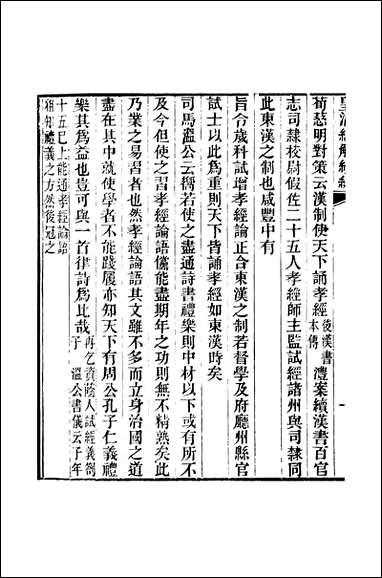 皇清經解續編
荀慈明對策云漢制使天下誦孝經後漢書本傳澧案續漢書百官
志司隸校尉假佐二十五人孝經師主監試經諸州與司隸同
此東漢之制也咸豐中有
旨令歲科試增孝經論正合東漢之制若督學及府廳州縣官
試士以此為重則天下皆誦孝經如東漢時矣
司馬溫公云嚮若使之盡通詩書禮樂則中材以下或有所不
及今但使之習孝經論語儻能盡期年之功則無不精熟矣此
乃業之易習者也然孝經論語其文雖不多而立身治國之道
盡在其中就使學者不能踐履亦知天下有周公孔子仁義禮
樂其為益也豈可與一首律詩為比哉再乞資蔭人試經義劄子 溫公書儀云子年
十五已上能通孝經論語粗知禮義之方然後冠之